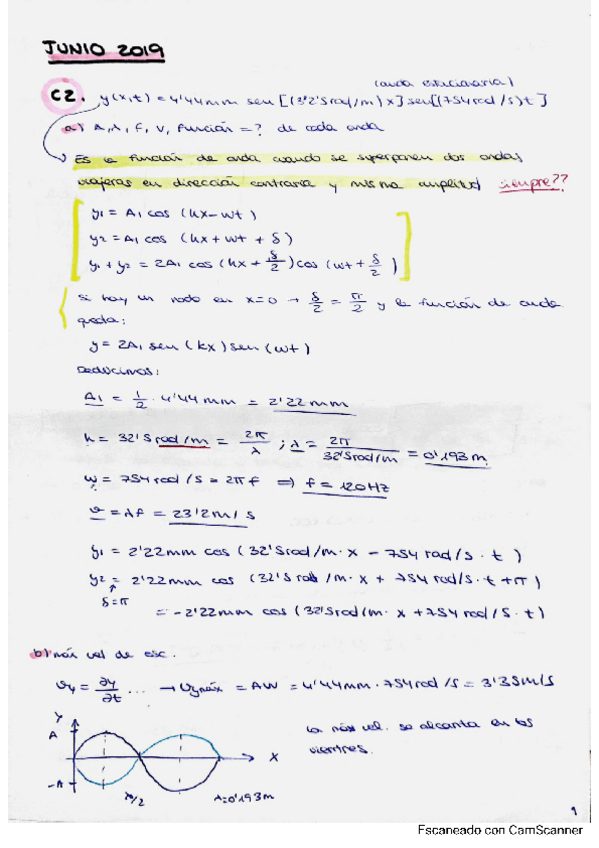 JUNIO 2019
(onda estacionaria)
C2. y(x,t) = 4'44mm sen [(32'5rad/m) x] sen[(754rad/s) t]
a) A, λ, f, v, función = ? de cada onda
Es la función de onda cuando se superponen dos ondas
viajeras en dirección contraria y misma amplitud siempre??
y1 = A1 cos (kx-wt)
y2 = A1 cos (kx + wt + δ)
y1 + y2 = 2A1 cos (kx + δ/2) cos (wt + δ/2)
si hay un nodo en x=0 → δ/2 = π/2 y la función de onda
queda:
y = 2A1 sen (kx) sen (wt)
Deducimos:
A1 = 1/2 · 4'44 mm = 2'22 mm
k = 32'5 rad/m = 2π/λ ; λ = 2π/32'5rad/m = 0'193 m
w = 754 rad/s = 2π f ⇒ f = 120Hz
v = λf = 23'2 m/s
y1 = 2'22mm cos (32'5rad/m · x - 754 rad/s · t)
y2 = 2'22mm cos (32'5 rad/m · x + 754 rad/s · t + π)
δ=π
= -2'22mm cos (32'5rad/m · x + 754 rad/s · t)
b) máx vel de esc.
vy = ∂y/∂t ... → vymáx = AW = 4'44mm · 754rad/s = 3'35m/s
La máx vel. se alcanza en los
vientres.
Y
A
X
-A
λ/2
λ=0'193m
1
Escaneado con CamScanner